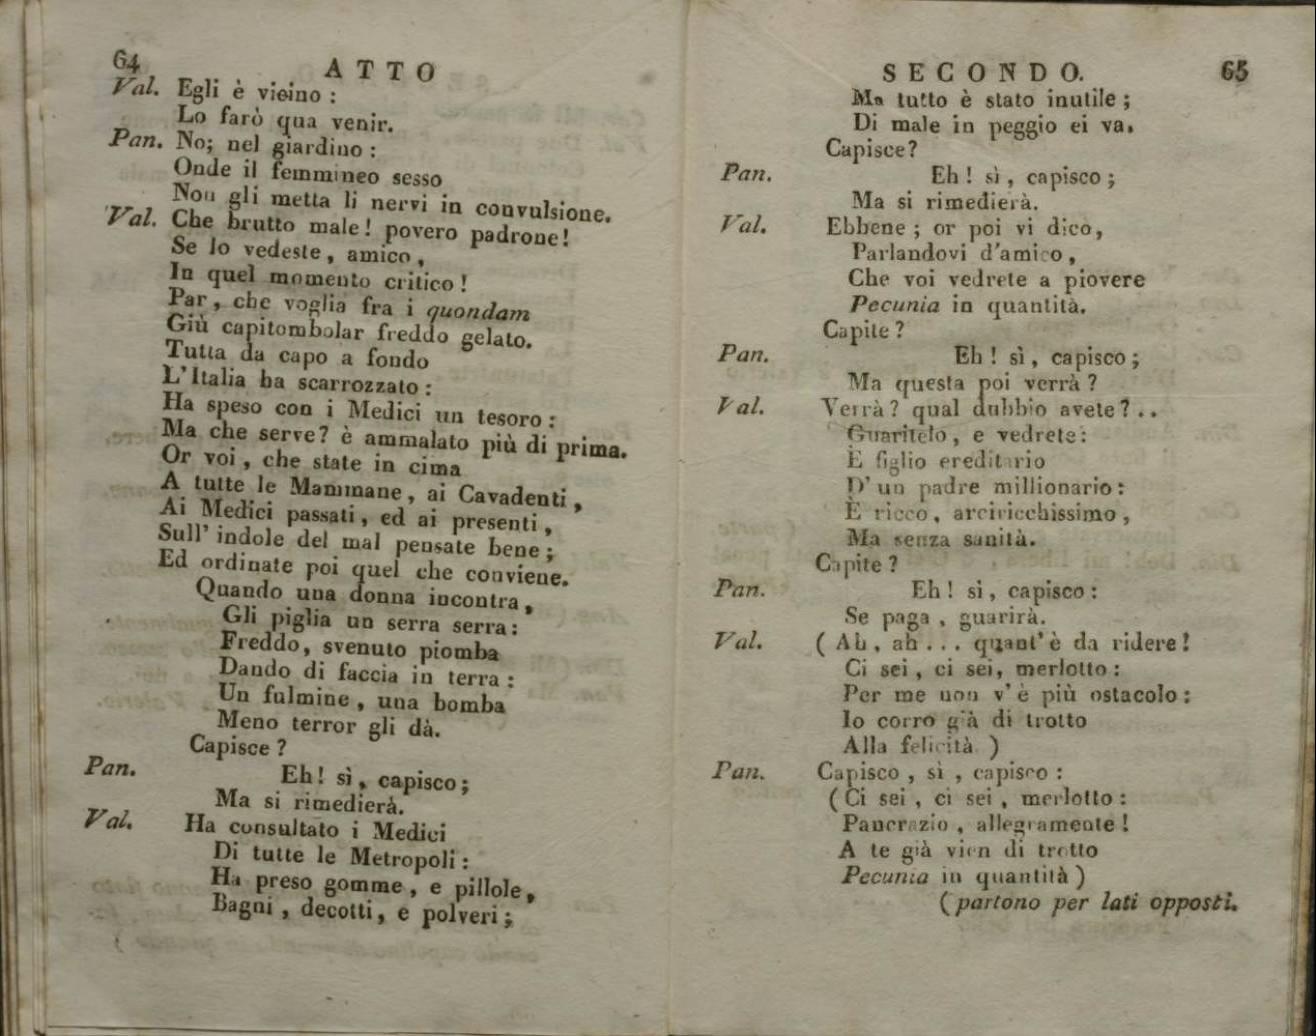 64
ATTO
Val. Egli è vicino :
Lo farò qua venir.
Pan. No; nel giardino :
Onde il femmineo sesso
Non gli metta li nervi in convulsione.
Val. Che brutto male! povero padrone!
Se lo vedeste, amico,
In quel momento critico!
Par, che voglia fra i quondam
Giù capitombolar freddo gelato.
Tutta da capo a fondo
L'Italia ha scarrozzato :
Ha speso con i Medici un tesoro :
Ma che serve? è ammalato più di prima.
Or voi, che state in cima
A tutte le Mammane, ai Cavadenti,
Ai Medici passati, ed ai presenti,
Sull' indole del mal pensate bene;
Ed ordinate poi quel che conviene.
Quando una donna incontra,
Gli piglia un serra serra :
Freddo, svenuto piomba
Dando di faccia in terra :
Un fulmine, una bomba
Meno terror gli dà.
Capisce?
Pan. Eh! sì, capisco;
Ma si rimedierà.
Val. Ha consultato i Medici
Di tutte le Metropoli :
Ha preso gomme, e pillole,
Bagni, decotti, e polveri;
SECONDO.
65
Ma tutto è stato inutile;
Di male in peggio ei va.
Capisce?
Pan. Eh! sì, capisco;
Ma si rimedierà.
Val. Ebbene; or poi vi dico,
Parlandovi d'amico,
Che voi vedrete a piovere
Pecunia in quantità.
Capite?
Pan. Eh! sì, capisco;
Ma questa poi verrà?
Val. Verrà? qual dubbio avete?..
Guaritelo, e vedrete :
È figlio ereditario
D' un padre millionario :
È ricco, arciricchissimo,
Ma senza sanità.
Capite?
Pan. Eh! si, capisco :
Se paga, guarirà.
Val. (Ah, ah... quant' è da ridere!
Ci sei, ci sei, merlotto :
Per me non v' è più ostacolo :
Io corro già di trotto
Alla felicità.)
Pan. Capisco, sì, capisco :
(Ci sei, ci sei, merlotto :
Pancrazio, allegramente!
A te già vien di trotto
Pecunia in quantità)
(partono per lati opposti.